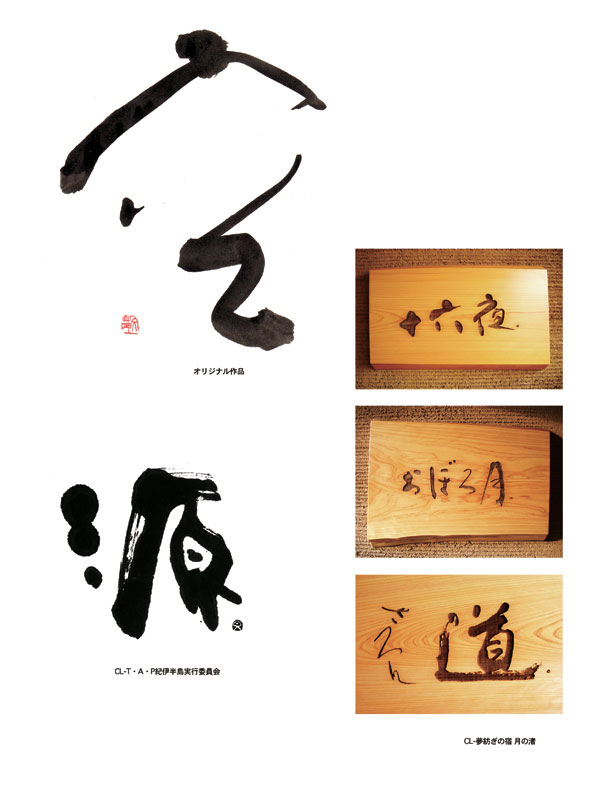 オリジナル作品
源
CL-T・A・P紀伊半島実行委員会
十六夜
おぼろ月
さろん
道
CL-夢紡ぎの宿 月の渚